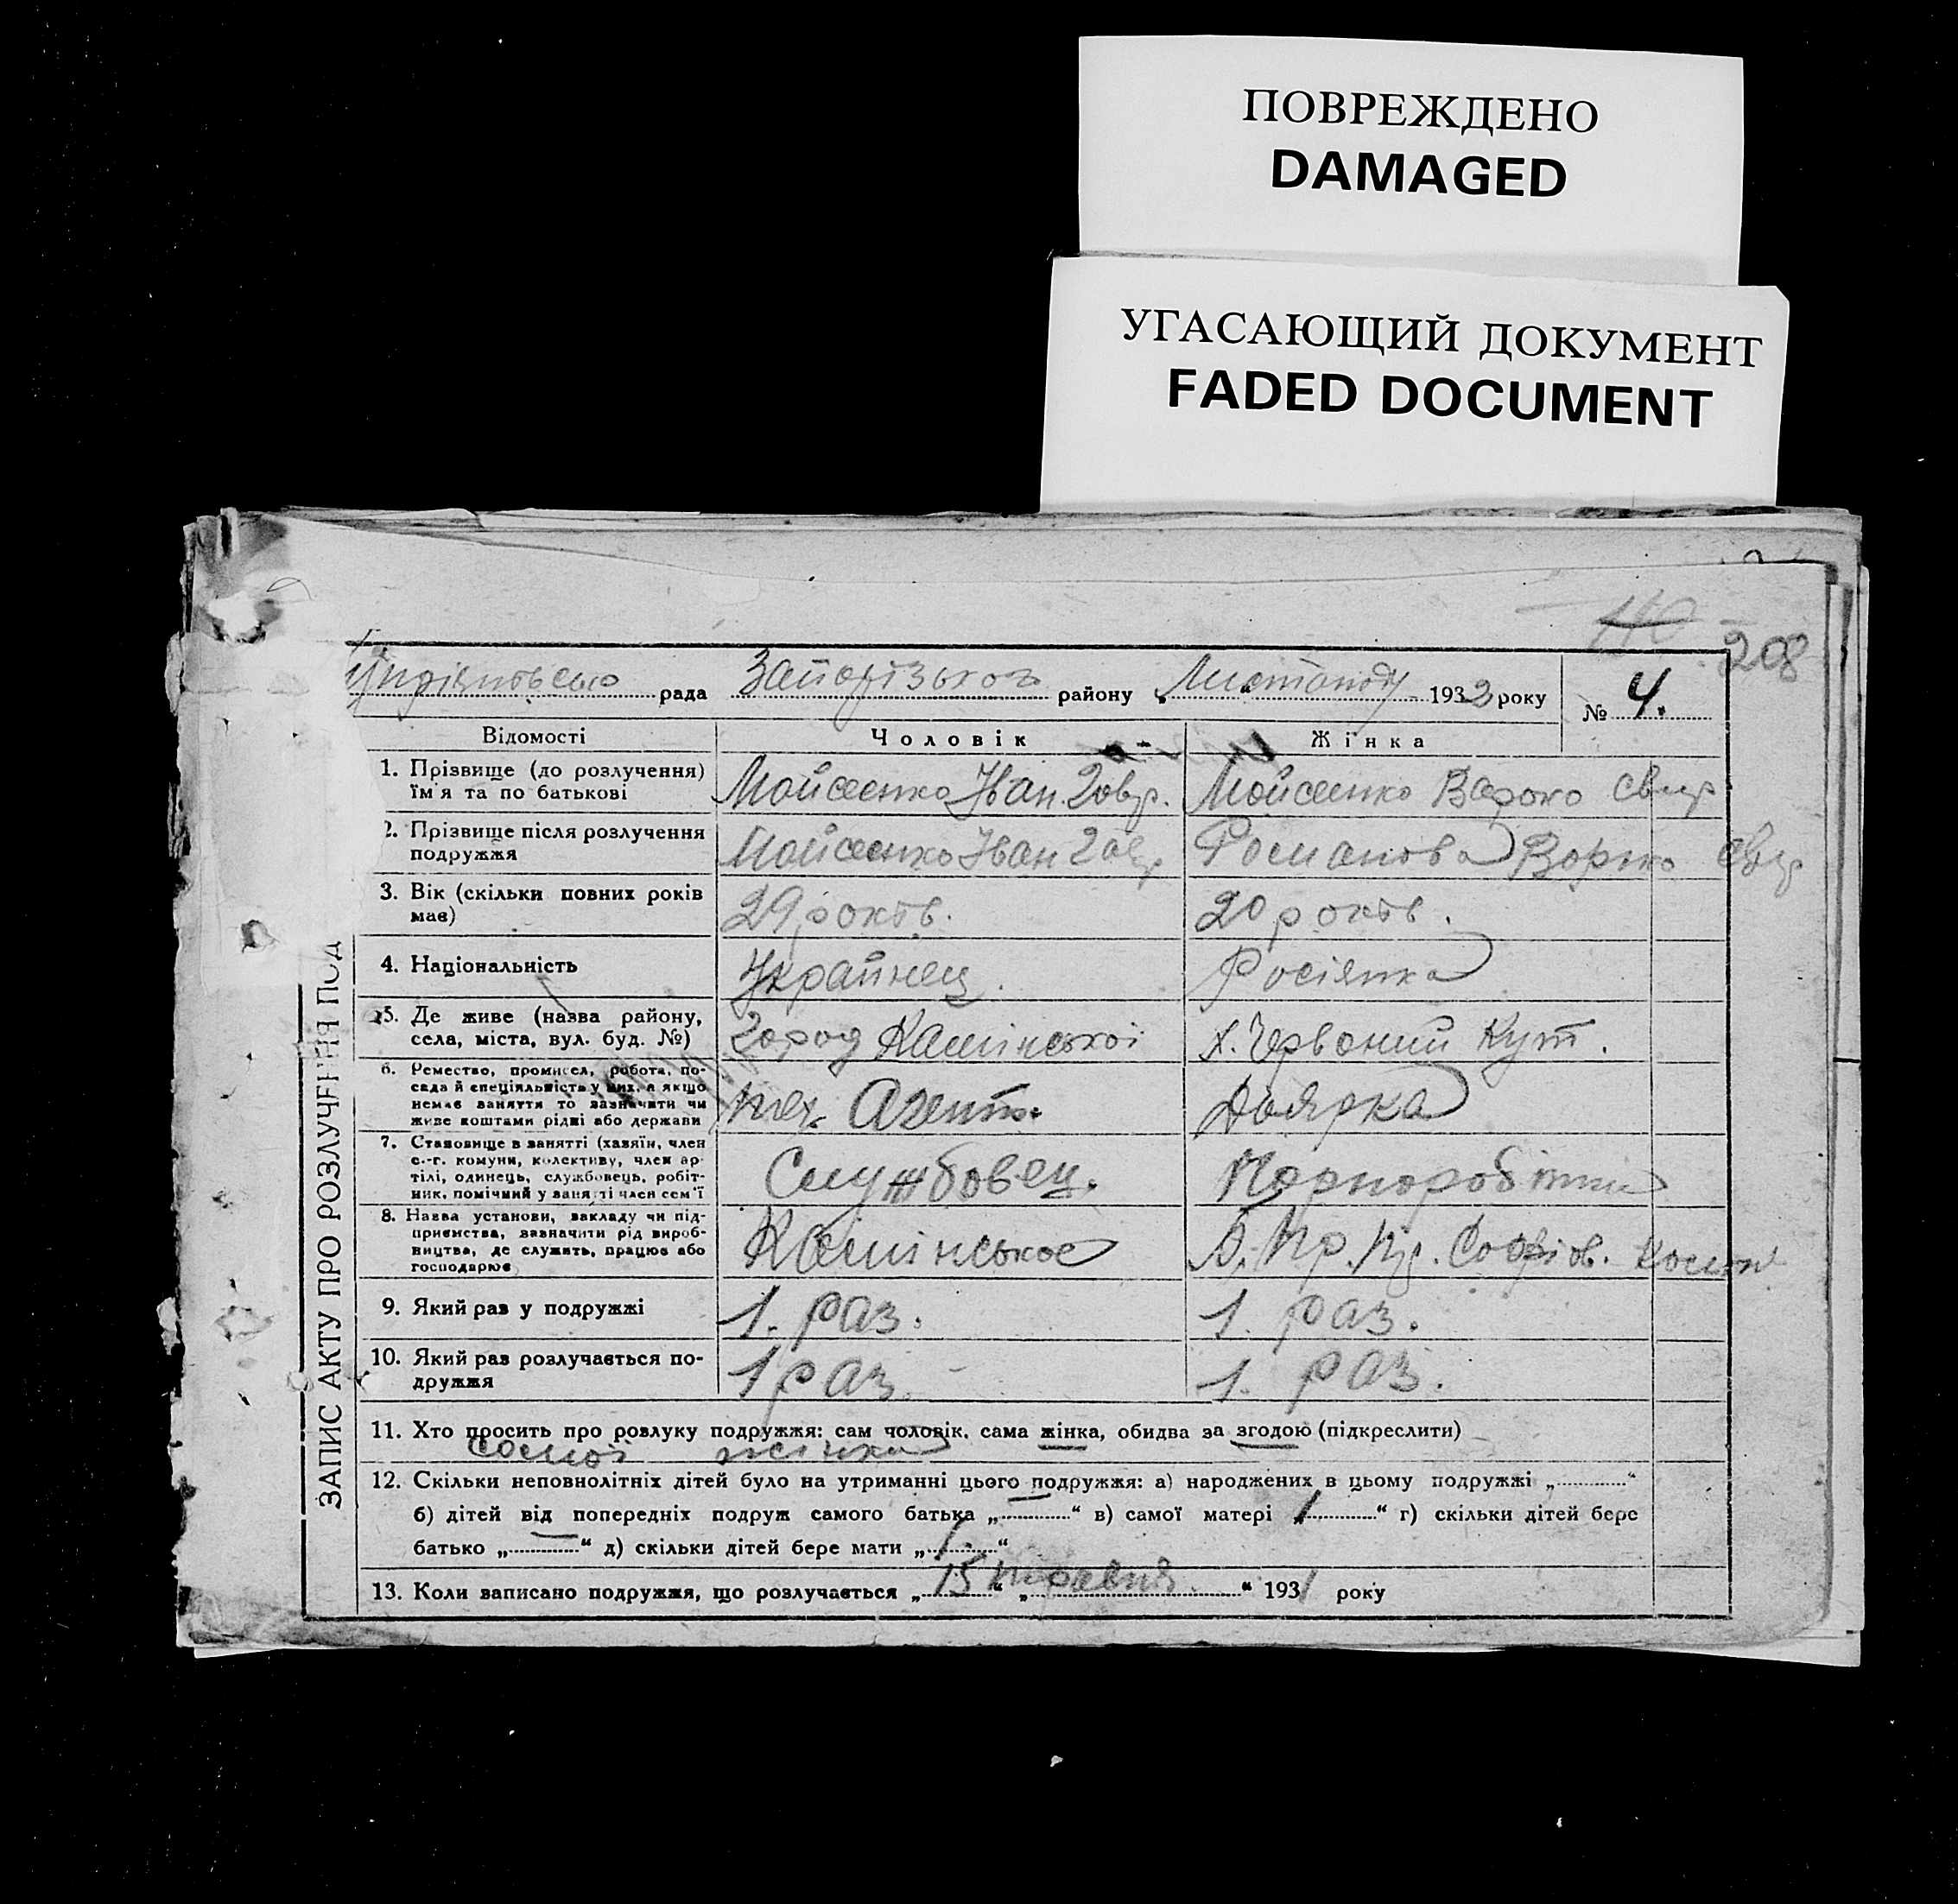 ПОВРЕЖДЕНО
DAMAGED
УГАСАЮЩИЙ ДОКУМЕНТ
FADED DOCUMENT
110 208
рада району Листопаду 1933 року № 4.
Відомості Чоловік Жінка
1. Прізвище (до розлучення) Мойсеенко Іван Мойсеенко
ім'я та по батькові
2. Прізвище після розлучення Мойсеенко Іван Романова
подружжя
3. Вік (скільки повних років 29 років. 20 років.
має)
4. Національність Украйнец. Росіянка
5. Де живе (назва району, город х. Червоний Кут.
села, міста, вул. буд. №)
6. Ремество, промисел, робота, по- Агент. Доярка
сада й спеціяльність у них, а якщо
немає заняття то зазначити чи
живе коштами рідні або держави
7. Становище в занятті (хазяїн, член Службовец.
с.-г. комуни, колективу, член ар-
тілі, одинець, службовець, робіт-
ник, помічний у занятті член сем'ї
8. Назва установи, закладу чи під-
приємства, зазначити рід вироб-
ництва, де служить, працює або
господарює
9. Який раз у подружжі 1. раз. 1. раз.
10. Який раз розлучається по- 1 раз 1. раз.
дружжя
11. Хто просить про розлуку подружжя: сам чоловік, сама жінка, обидва за згодою (підкреслити)
жінка
12. Скільки неповнолітніх дітей було на утриманні цього подружжя: а) народжених в цьому подружжі „ “
б) дітей від попередніх подруж самого батька „ “ в) самої матері „1“ г) скільки дітей бере
батько „—“ д) скільки дітей бере мати „1.“
13. Коли записано подружжя, що розлучається „15“ „травня“ 1931 року
ЗАПИС АКТУ ПРО РОЗЛУЧЕННЯ ПОД